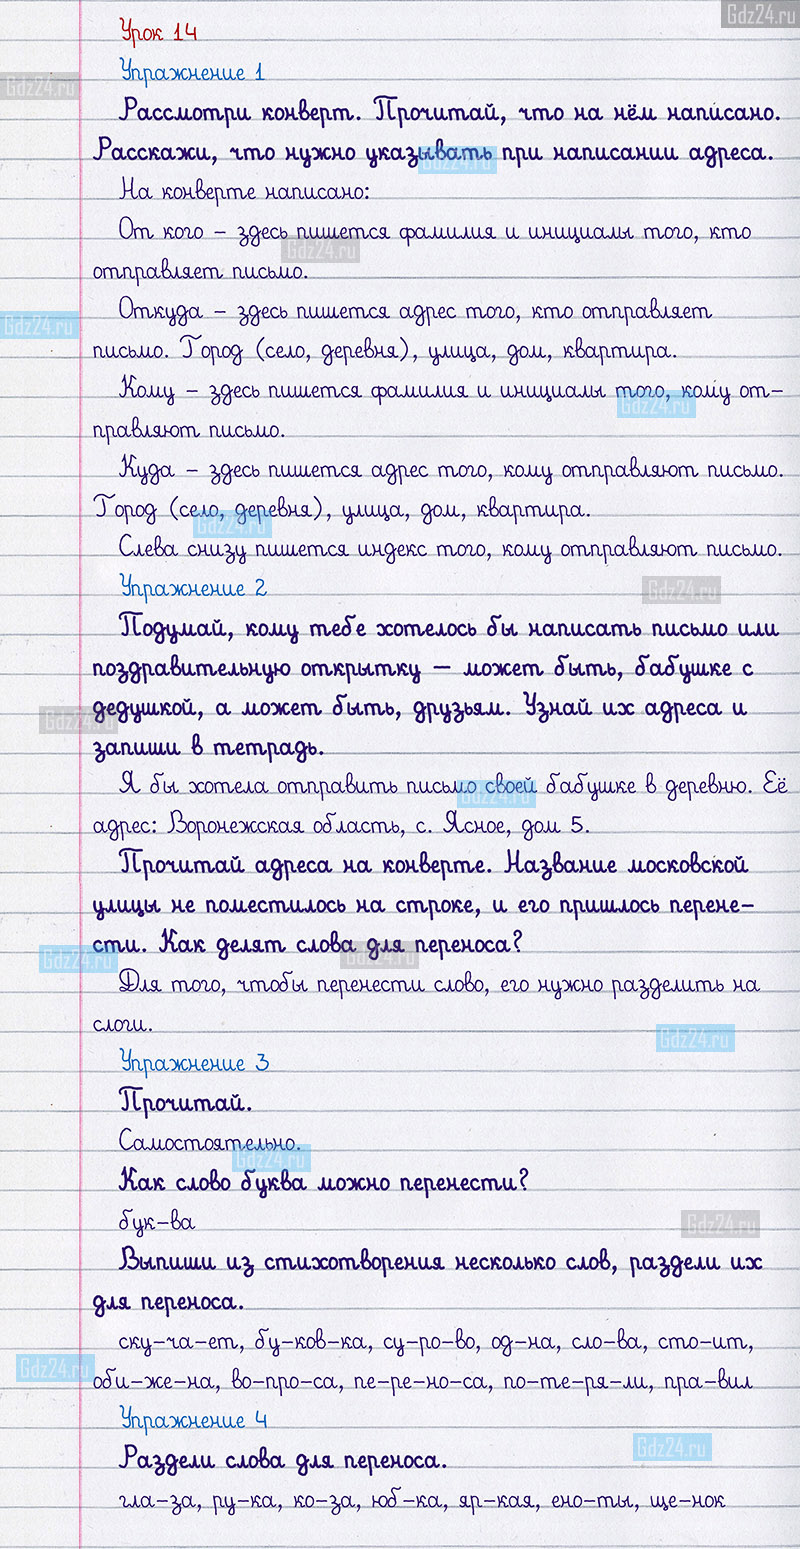 Gdz24.ru
Урок 14
Упражнение 1
Gdz24.ru
Рассмотри конверт. Прочитай, что на нём написано.
Расскажи, что нужно указывать при написании адреса.
Gdz24.ru
На конверте написано:
От кого – здесь пишется фамилия и инициалы того, кто
Gdz24.ru
отправляет письмо.
Откуда – здесь пишется адрес того, кто отправляет
Gdz24.ru
письмо. Город (село, деревня), улица, дом, квартира.
Кому – здесь пишется фамилия и инициалы того, кому от–
Gdz24.ru
правляют письмо.
Куда – здесь пишется адрес того, кому отправляют письмо.
Город (село, деревня), улица, дом, квартира.
Gdz24.ru
Слева снизу пишется индекс того, кому отправляют письмо.
Упражнение 2
Gdz24.ru
Подумай, кому тебе хотелось бы написать письмо или
поздравительную открытку — может быть, бабушке с
дедушкой, а может быть, друзьям. Узнай их адреса и
Gdz24.ru
запиши в тетрадь.
Я бы хотела отправить письмо своей бабушке в деревню. Её
Gdz24.ru
адрес: Воронежская область, с. Ясное, дом 5.
Прочитай адреса на конверте. Название московской
улицы не поместилось на строке, и его пришлось перене–
сти. Как делят слова для переноса?
Gdz24.ru
Gdz24.ru
Для того, чтобы перенести слово, его нужно разделить на
слоги.
Gdz24.ru
Упражнение 3
Прочитай.
Самостоятельно.
Gdz24.ru
Как слово буква можно перенести?
бук–ва
Gdz24.ru
Выпиши из стихотворения несколько слов, раздели их
для переноса.
ску–ча–ет, бу–ков–ка, су–ро–во, од–на, сло–ва, сто–ит,
Gdz24.ru
оби–же–на, во–про–са, пе–ре–но–са, по–те–ря–ли, пра–вил
Упражнение 4
Gdz24.ru
Раздели слова для переноса.
гла–за, ру–ка, ко–за, юб–ка, яр–кая, ено–ты, ще–нок